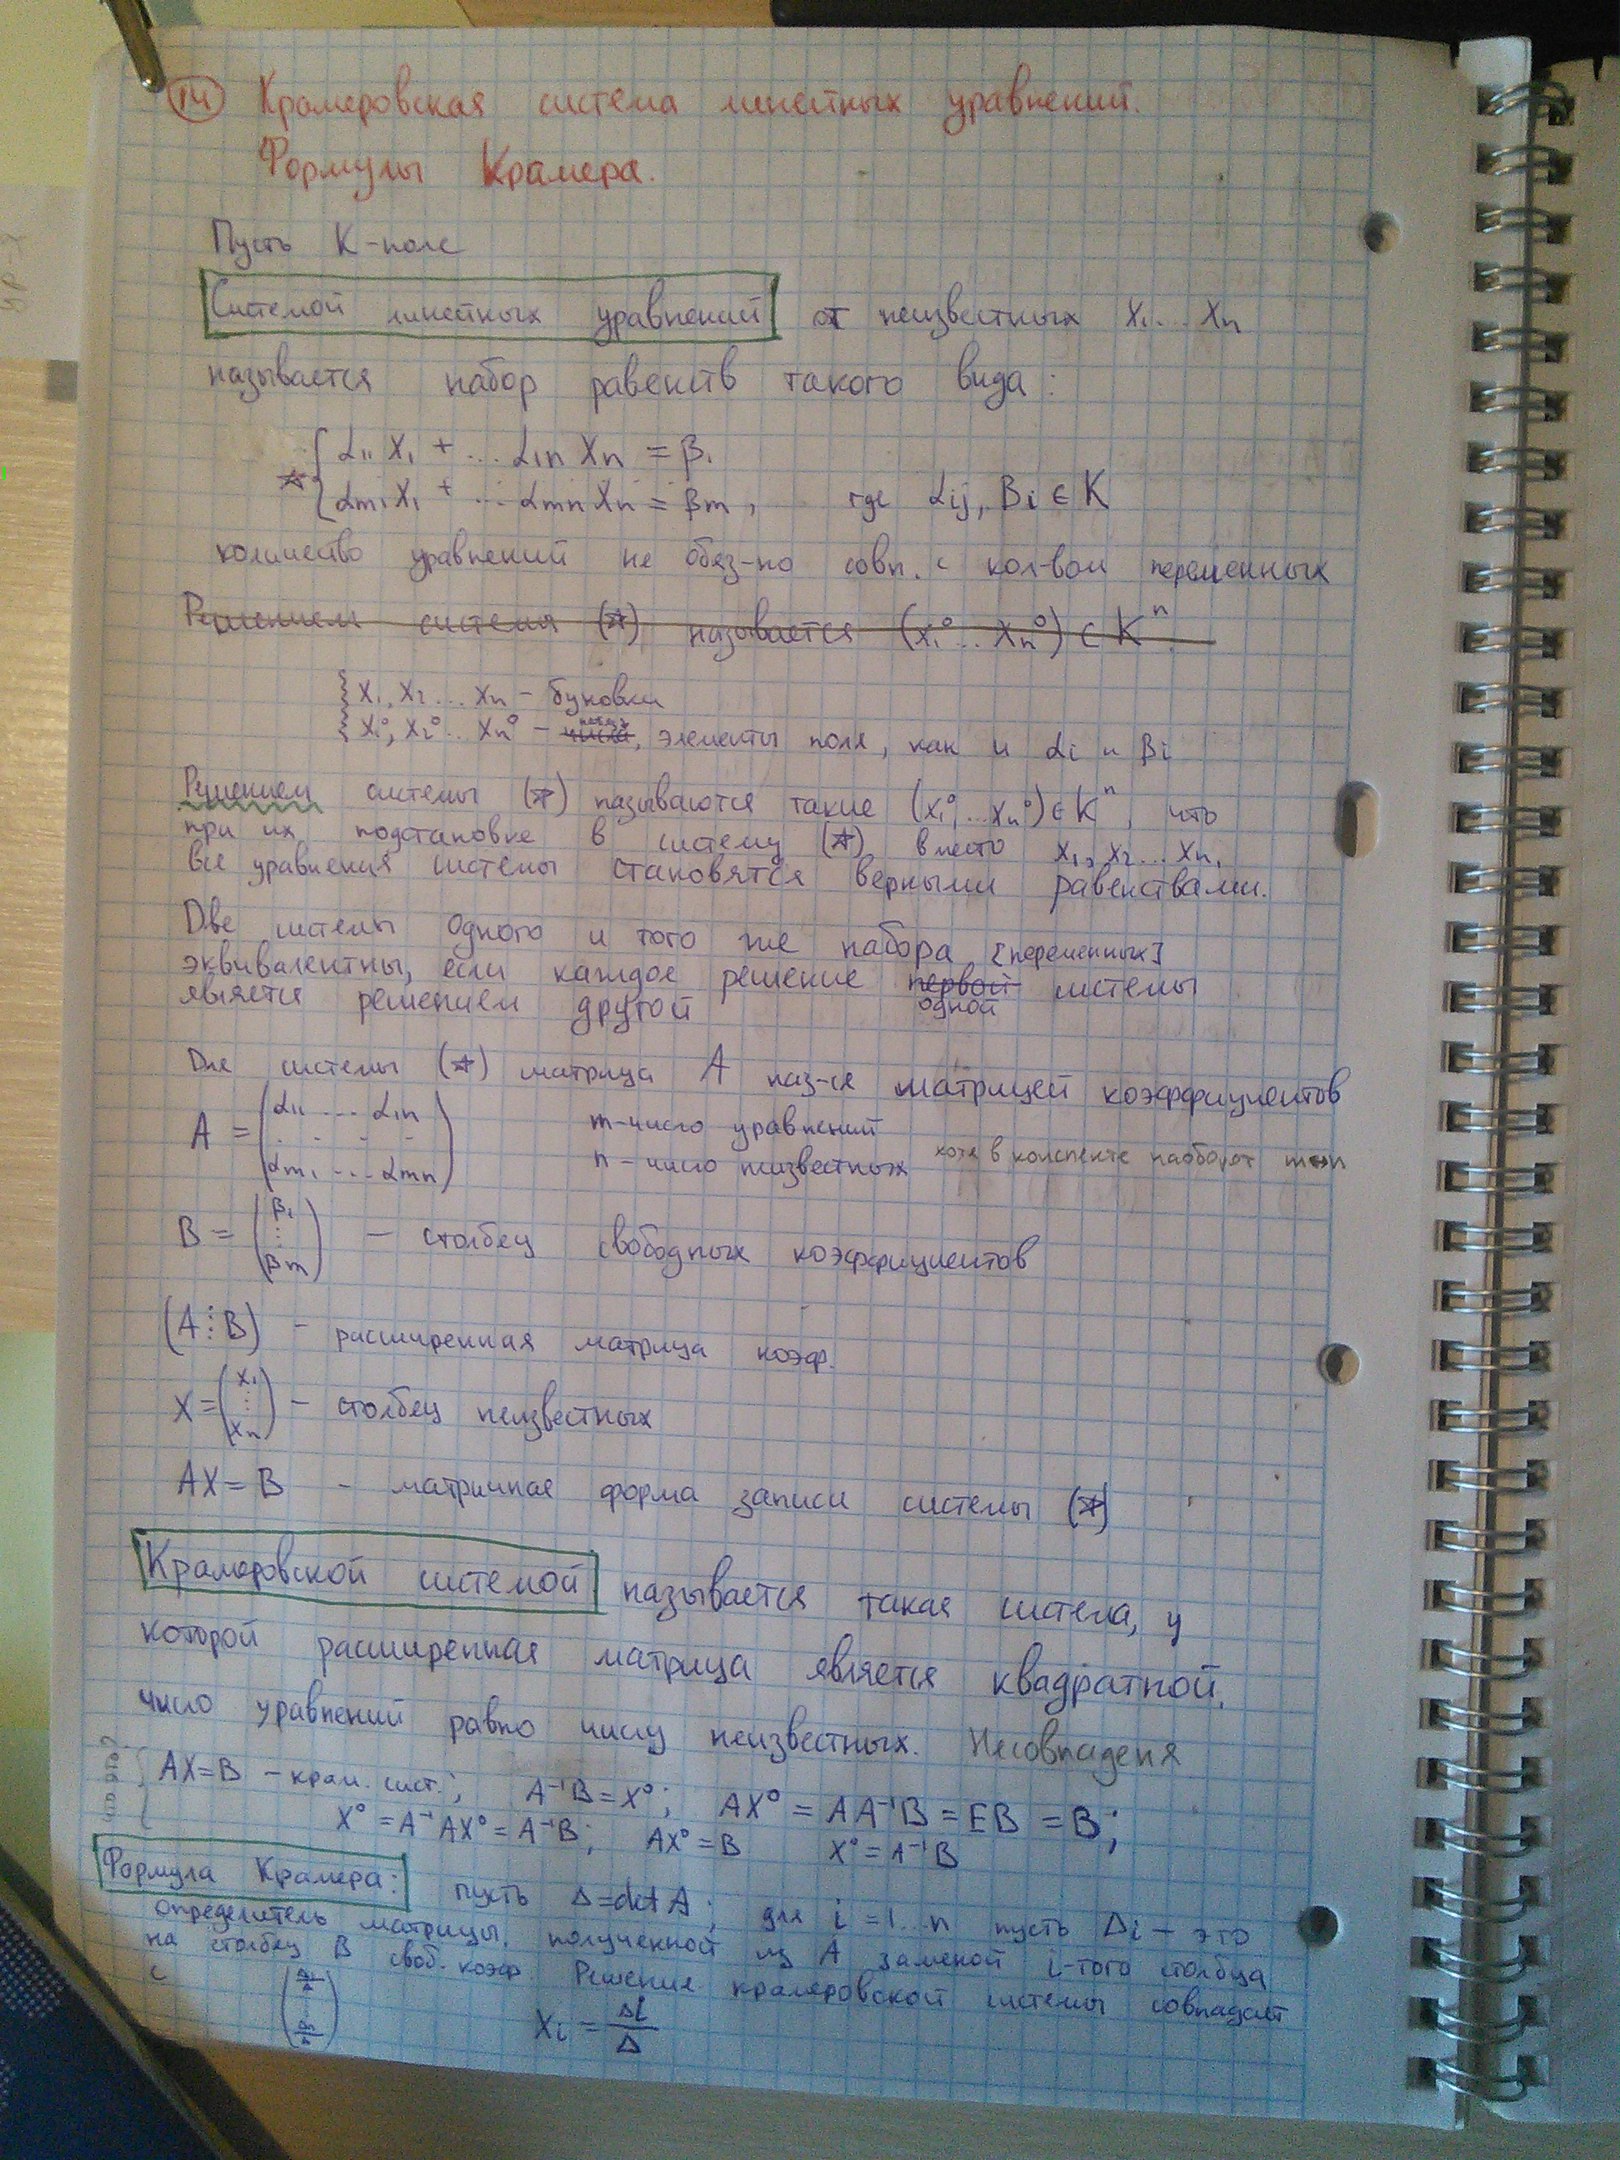 14 Крамеровская система линейных уравнений.
Формулы Крамера.
Пусть K-поле
Системой линейных уравнений от неизвестных X₁...Xₙ
называется набор равенств такого вида:
☆ { α₁₁X₁ + ... α₁ₙXₙ = β₁
αₘ₁X₁ + ... αₘₙXₙ = βₘ, где αᵢⱼ, Bᵢ ∈ K
количество уравнений не обяз-но совп. с кол-вом переменных
Решением система (☆) называется (x₁⁰...xₙ⁰) ∈ Kⁿ.
X₁, X₂...Xₙ – буковки
X₁⁰, X₂⁰...Xₙ⁰ – числа, элементы поля, как и αᵢ и βᵢ
Решением системы (☆) называются такие (X₁⁰,...Xₙ⁰) ∈ Kⁿ, что
при их подстановке в систему (☆) вместо X₁, X₂...Xₙ,
все уравнения системы становятся верными равенствами.
Две системы одного и того же набора [переменных]
эквивалентны, если каждое решение первой системы
одной
является решением другой
Для системы (☆) матрица A наз-ся матрицей коэффициентов
A = (α₁₁ ... α₁ₙ
. . . .
αₘ₁ ... αₘₙ)
m-число уравнений
n – число неизвестных хотя в конспекте наоборот m↔n
B = (β₁ ⋮ βₘ) – столбец свободных коэффициентов
(A⋮B) – расширенная матрица коэф.
X = (X₁ ⋮ Xₙ) – столбец неизвестных
AX = B – матричная форма записи системы (☆)
Крамеровской системой называется такая система, у
которой расширенная матрица является квадратной,
число уравнений равно числу неизвестных. Несовпаденя
что это?
AX=B – крам. сист.; A⁻¹B = X⁰; AX⁰ = AA⁻¹B = EB = B;
X⁰ = A⁻¹AX⁰ = A⁻¹B; AX⁰ = B X⁰ = A⁻¹B
Формула Крамера: пусть Δ = det A; для i = 1...n пусть Δᵢ – это
определитель матрицы, полученной из A заменой i-того столбца
на столбец B своб. коэф. Решение крамеровской системы совпадает
с (Δ₁/Δ ⋮ Δₙ/Δ) Xᵢ = Δᵢ/Δ